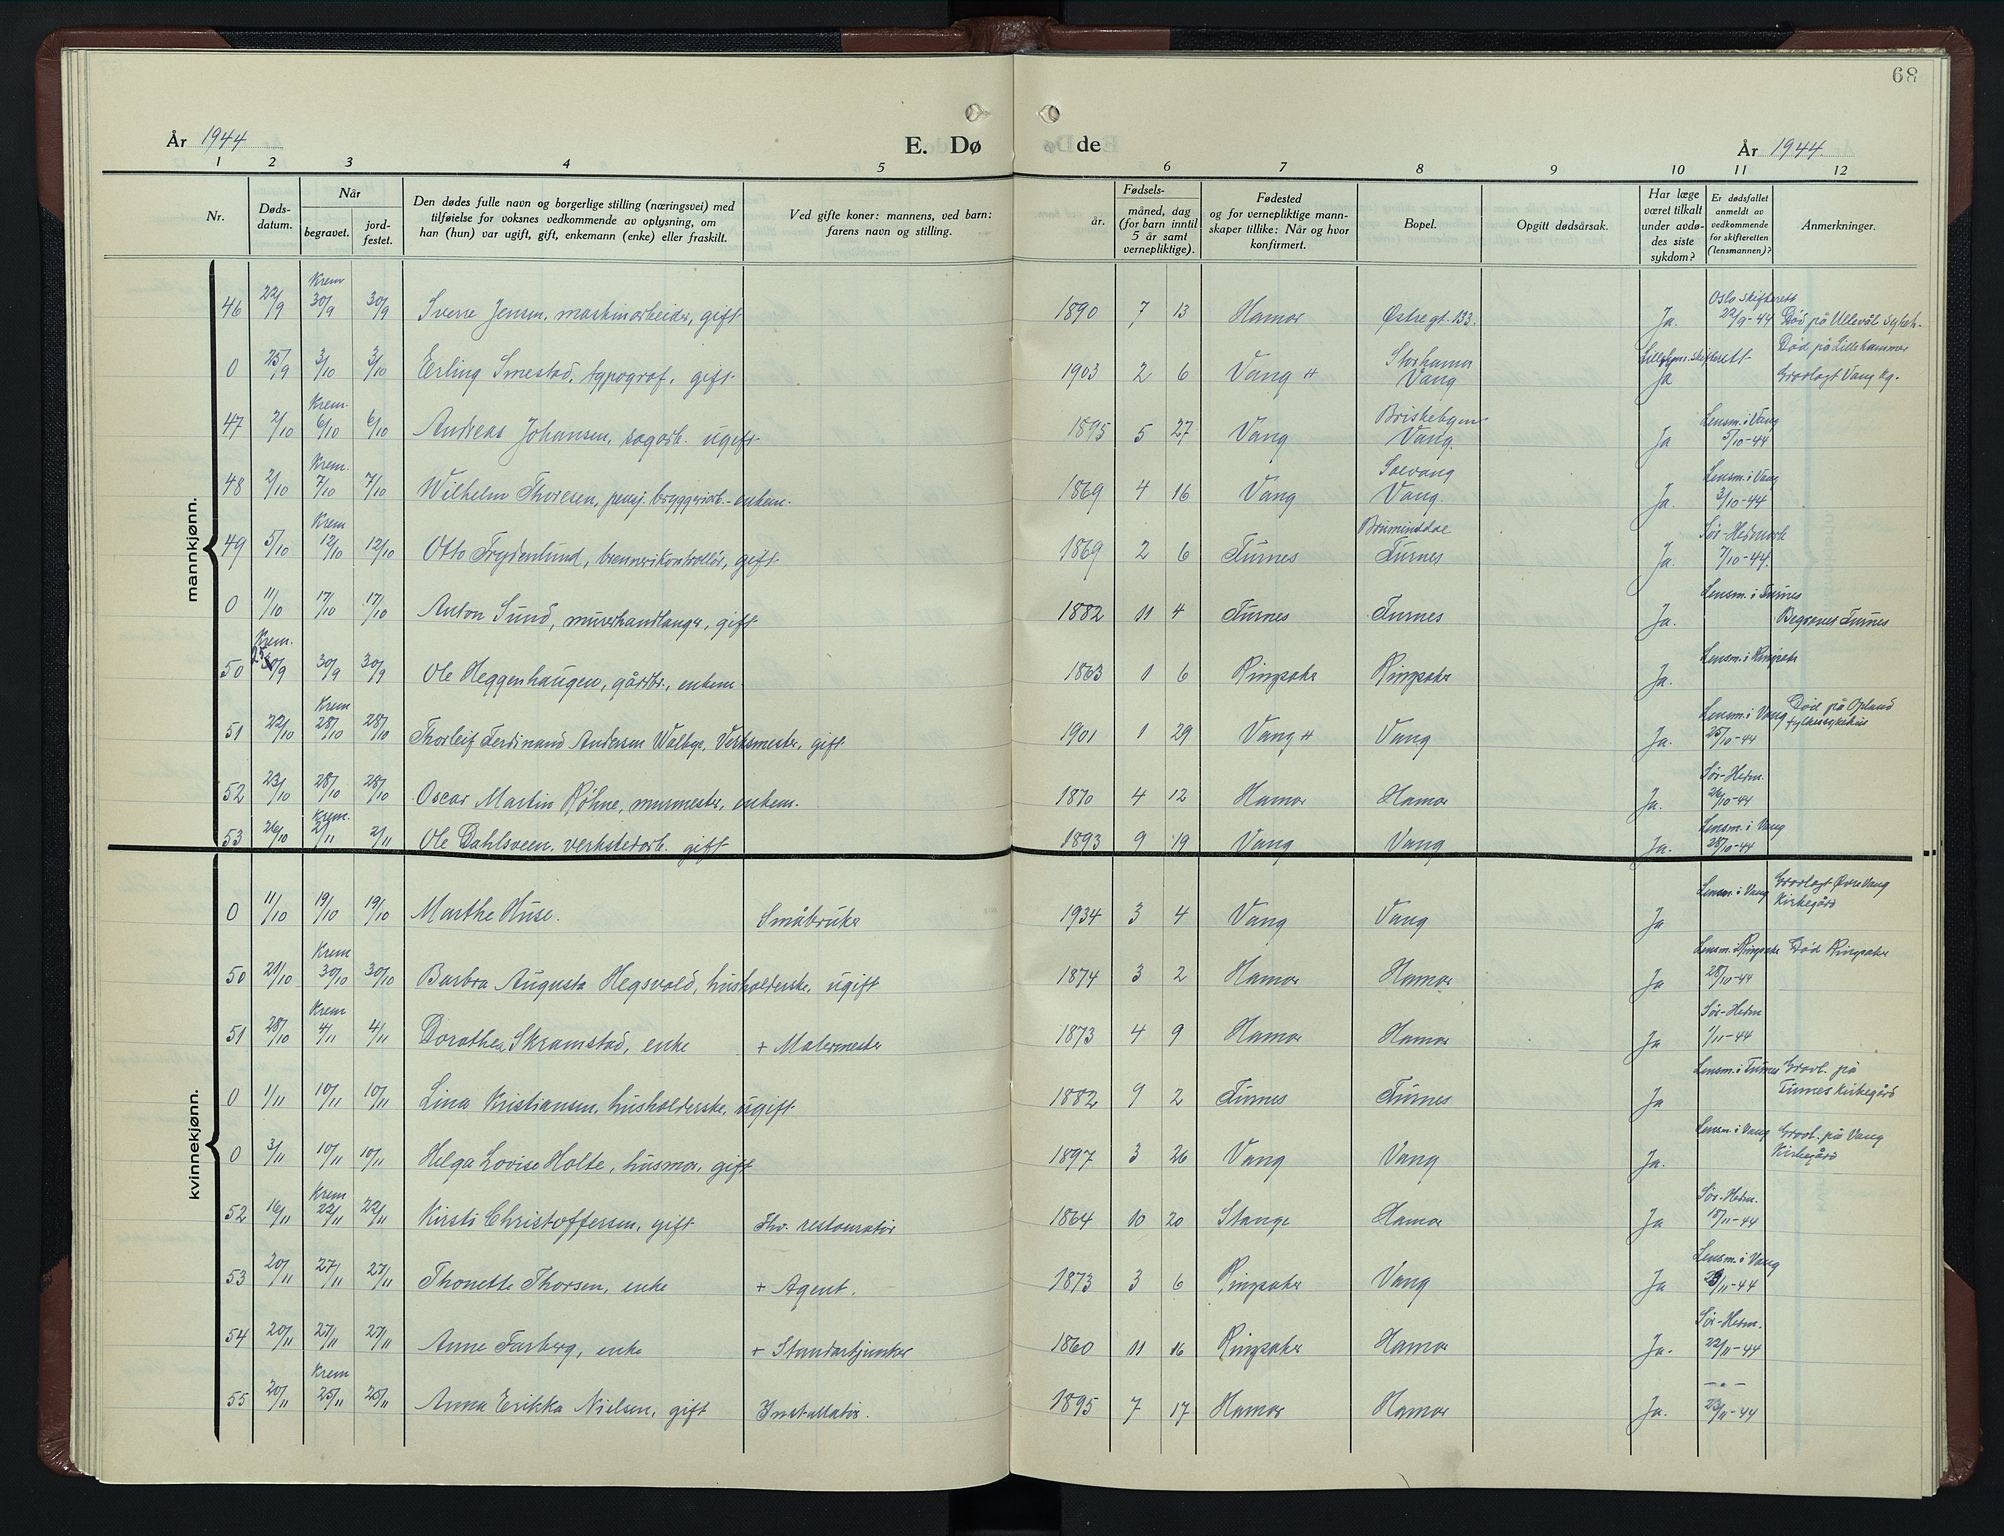 68
År 1944 E. Dø de År 1944.
1 2 3 4 5 6 7 8 9 10 11 12
Nr. Døds-datum. Når begravet. jord-festet. Den dødes fulle navn og borgerlige stilling (næringsvei) med tilføielse for voksnes vedkommende av oplysning, om han (hun) var ugift, gift, enkemann (enke) eller fraskilt. Ved gifte koner: mannens, ved barn: farens navn og stilling. Fødsels- år. måned, dag (for barn inntil 5 år samt vernepliktige). Fødested og for vernepliktige mann-skaper tillike: Når og hvor konfirmert. Bopel. Opgitt dødsårsak. Har læge været tilkalt under avdø-des siste sykdom? Er dødsfallet anmeldt av vedkommende for skifteretten (lensmannen)? Anmerkninger.
mannkjønn.
46 22/9 Krem 30/9 30/9 Sverre Jensen, maskinarbeider, gift 1890 7 13 Hamar Østregt. 133. Ja. Oslo skifterett 22/9-44 Død på Ullevål sykeh.
0 25/9 3/10 3/10 Erling Smestad, typograf, gift 1903 2 6 Vang Storhamar Vang Lilleham. skifterett Ja Død på Lillehammer Gravlagt Vang Kg.
47 2/10 Krem. 6/10 6/10 Andreas Johansen, sagarb. ugift 1895 5 27 Vang Briskebyen Vang. Ja Lensm. i Vang 5/10-44
48 2/10 Krem. 7/10 7/10 Wilhelm Thoresen, pensj. bryggeriarb. - enkem. 1869 4 16 Vang Solvang Vang. Ja. Lensm. i Vang 3/10-44
49 5/10 Krem 12/10 12/10 Otto Frydenlund, brennerikontrollør, gift 1869 2 6 Furnes Brumunddal Furnes Ja. Sør-Hedmark 7/10-44.
0 11/10 17/10 17/10 Anton Sund, murerhandlanger, gift 1882 11 4 Furnes Furnes Ja. Lensm. i Furnes Begravet Furnes
50 Krem. 30/9 30/9 Ole Heggenhaugen, gårdbr., enkem. 1863 1 6 Ringsaker Ringsaker Ja. Lensm. i Ringsaker
51 22/10 Krem 28/10 28/10 Thorleif Ferdinand Andersen Walbye, Verksmester, gift 1901 1 29 Vang Vang Ja. Lensm. i Vang 25/10-44 Død på Opland fylkessykehus
52 23/10 28/10 28/10 Oscar Martin Røhne, murmester, enkem. 1870 4 12 Hamar Hamar Ja. Sør-Hedm. 26/10-44
53 26/10 Krem. 2/11 2/11 Ole Dahlsveen, verkstedarb. gift 1893 9 19 Vang Vang Ja. Lensm. i Vang 28/10-44
kvinnekjønn.
0 11/10 19/10 19/10 Marthe Huse. Småbruker 1934 3 4 Vang Vang Ja Lensm. i Vang Gravlagt Øvre Vang Kirkegård
50 21/10 Krem 30/10 30/10 Barbra Augusta Hegsvold, husholderske, ugift 1874 3 2 Hamar Hamar Ja Lensm. i Ringsaker 28/10-44 Død Ringsaker
51 28/10 Krem 4/11 4/11 Dorothea Skramstad, enke + Malermester 1873 4 9 Hamar Hamar Ja Sør-Hedm 1/11-44
0 1/11 10/11 10/11 Lina Kristiansen, husholderske, ugift 1882 9 2 Furnes Furnes Ja Lensm. i Furnes Gravl. på Furnes Kirkegård
0 3/11 10/11 10/11 Helga Lovise Holte, husmor, gift 1897 3 26 Vang Vang Ja. Lensm. i Vang Gravl. på Vang Kirkegård
52 16/11 Krem 22/11 22/11 Kirsti Christoffersen, gift Fhv. restauratør 1864 10 20 Stange Hamar Ja Sør-Hedm. 18/11-44
53 20/11 27/11 27/11 Thonette Thorsen, enke + Agent. 1873 3 6 Ringsaker Vang Ja Lensm. i Vang /11-44
54 20/11 27/11 27/11 Anne Farberg, enke + Standartjunker 1860 11 16 Ringsaker Hamar Ja. Sør-Hedm. 22/11-44
55 20/11 Krem 25/11 25/11 Anna Erikka Nielsen, gift Installatør. 1895 7 17 Hamar Hamar Ja. -"- 23/11-44